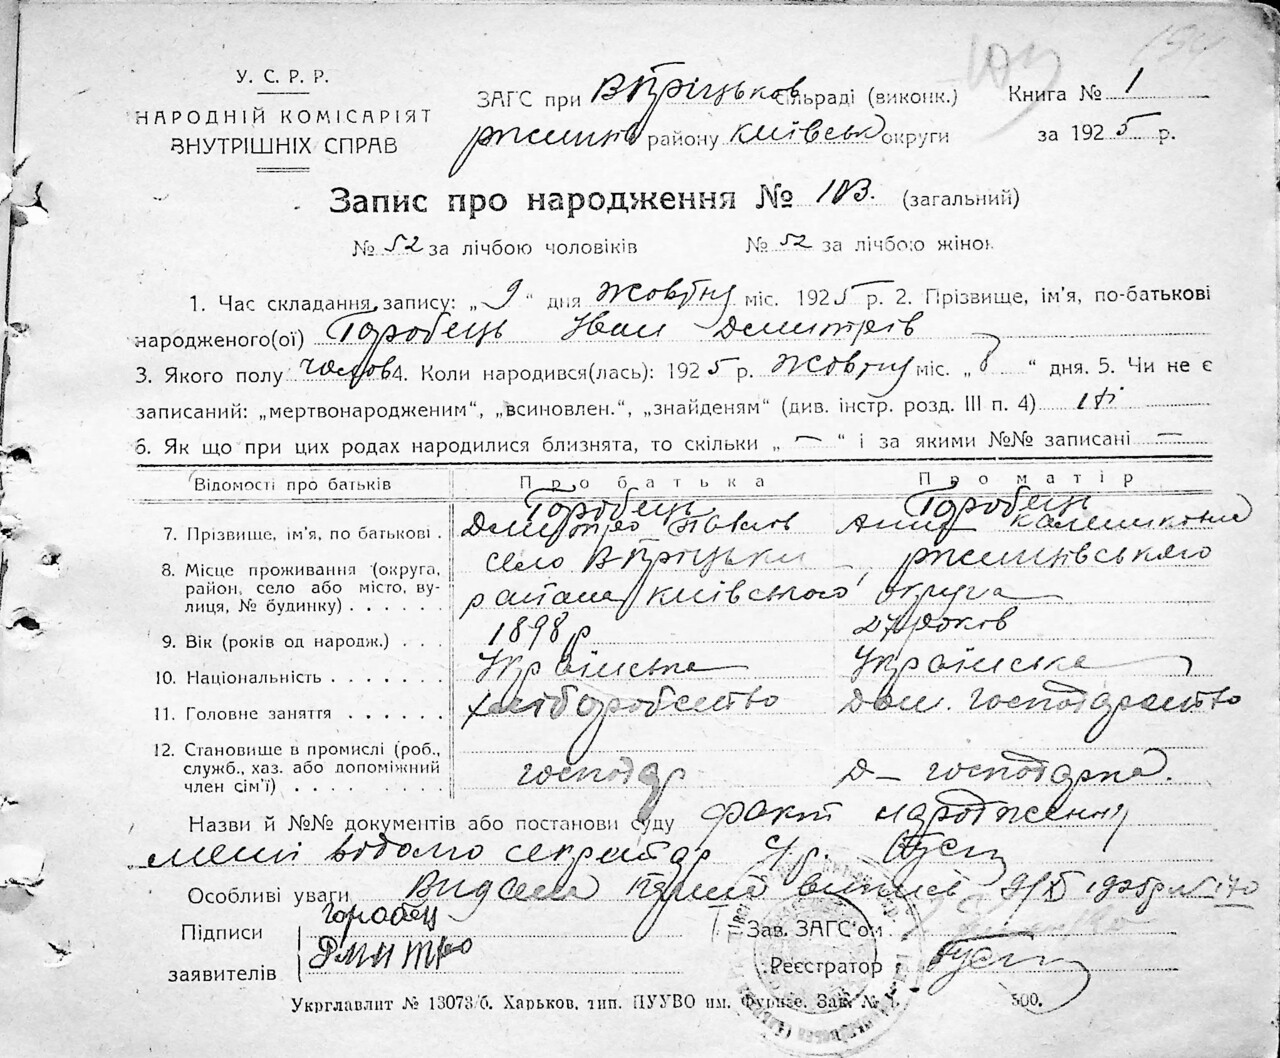 У. С. Р. Р.
НАРОДНІЙ КОМІСАРІЯТ
ВНУТРІШНІХ СПРАВ
ЗАГС при сільраді (виконк.)
району київськ округи
Книга № 1
за 1925 р.
Запис про народження № 103. (загальний)
№ 52 за лічбою чоловіків № 52 за лічбою жінок
1. Час складання запису: „9“ дня жовтня міс. 1925 р. 2. Прізвище, ім'я, по-батькові
народженого(ої) Горобець Иван Дмитрів
3. Якого полу чолов 4. Коли народився(лась): 1925 р. жовтня міс. „8“ дня. 5. Чи не є
записаний: „мертвонародженим“, „всиновлен.“, „знайденям“ (див. інстр. розд. III п. 4) ні
6. Як що при цих родах народилися близнята, то скільки „—“ і за якими №№ записані —
Відомості про батьків Про батька Про матір
Горобець Горобець
7. Прізвище, ім'я, по батькові . Дмитро Павлов Анна
8. Місце проживання (округа, район, село або місто, вулиця, № будинку) . . . . . . село ржищівського
района київського округа
9. Вік (років од народж.) . . . 1898 р 27 роков
10. Національність . . . . . . . Українська Українська
11. Головне заняття . . . . . . хліборобство Дом. господарство
12. Становище в промислі (роб., служб., хаз. або допоміжний член сім'ї) . . . . . . . . . господар Д— господарка.
Назви й №№ документів або постанови суду факт народження
мені відомо секретар
Особливі уваги
Підписи заявителів
горобец
Дмитро
Зав. ЗАГС'ом
Реєстратор
Укрглавлит № 13073/б. Харьков, тип. ПУУВО им. Фрунзе. Зак. № 500.